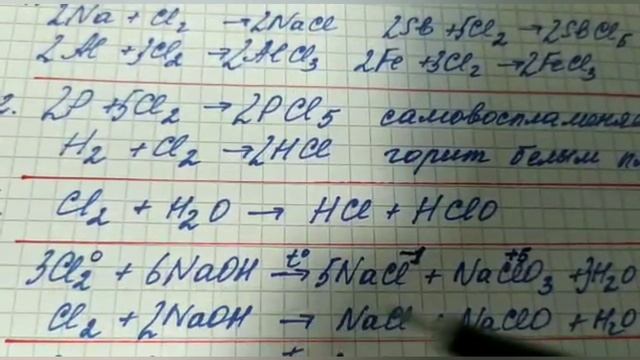 2Na + Cl₂ → 2NaCl 2Sb + 5Cl₂ → 2SbCl₅
2Al + 3Cl₂ → 2AlCl₃ 2Fe + 3Cl₂ → 2FeCl₃
2. 2P + 5Cl₂ → 2PCl₅
H₂ + Cl₂ → 2HCl горит белым
Cl₂ + H₂O → HCl + HClO
3Cl₂⁰ + 6NaOH →(t°) 5NaCl⁻¹ + NaCl⁺⁵O₃ + 3H₂O
Cl₂ + 2NaOH → NaCl NaClO + H₂O